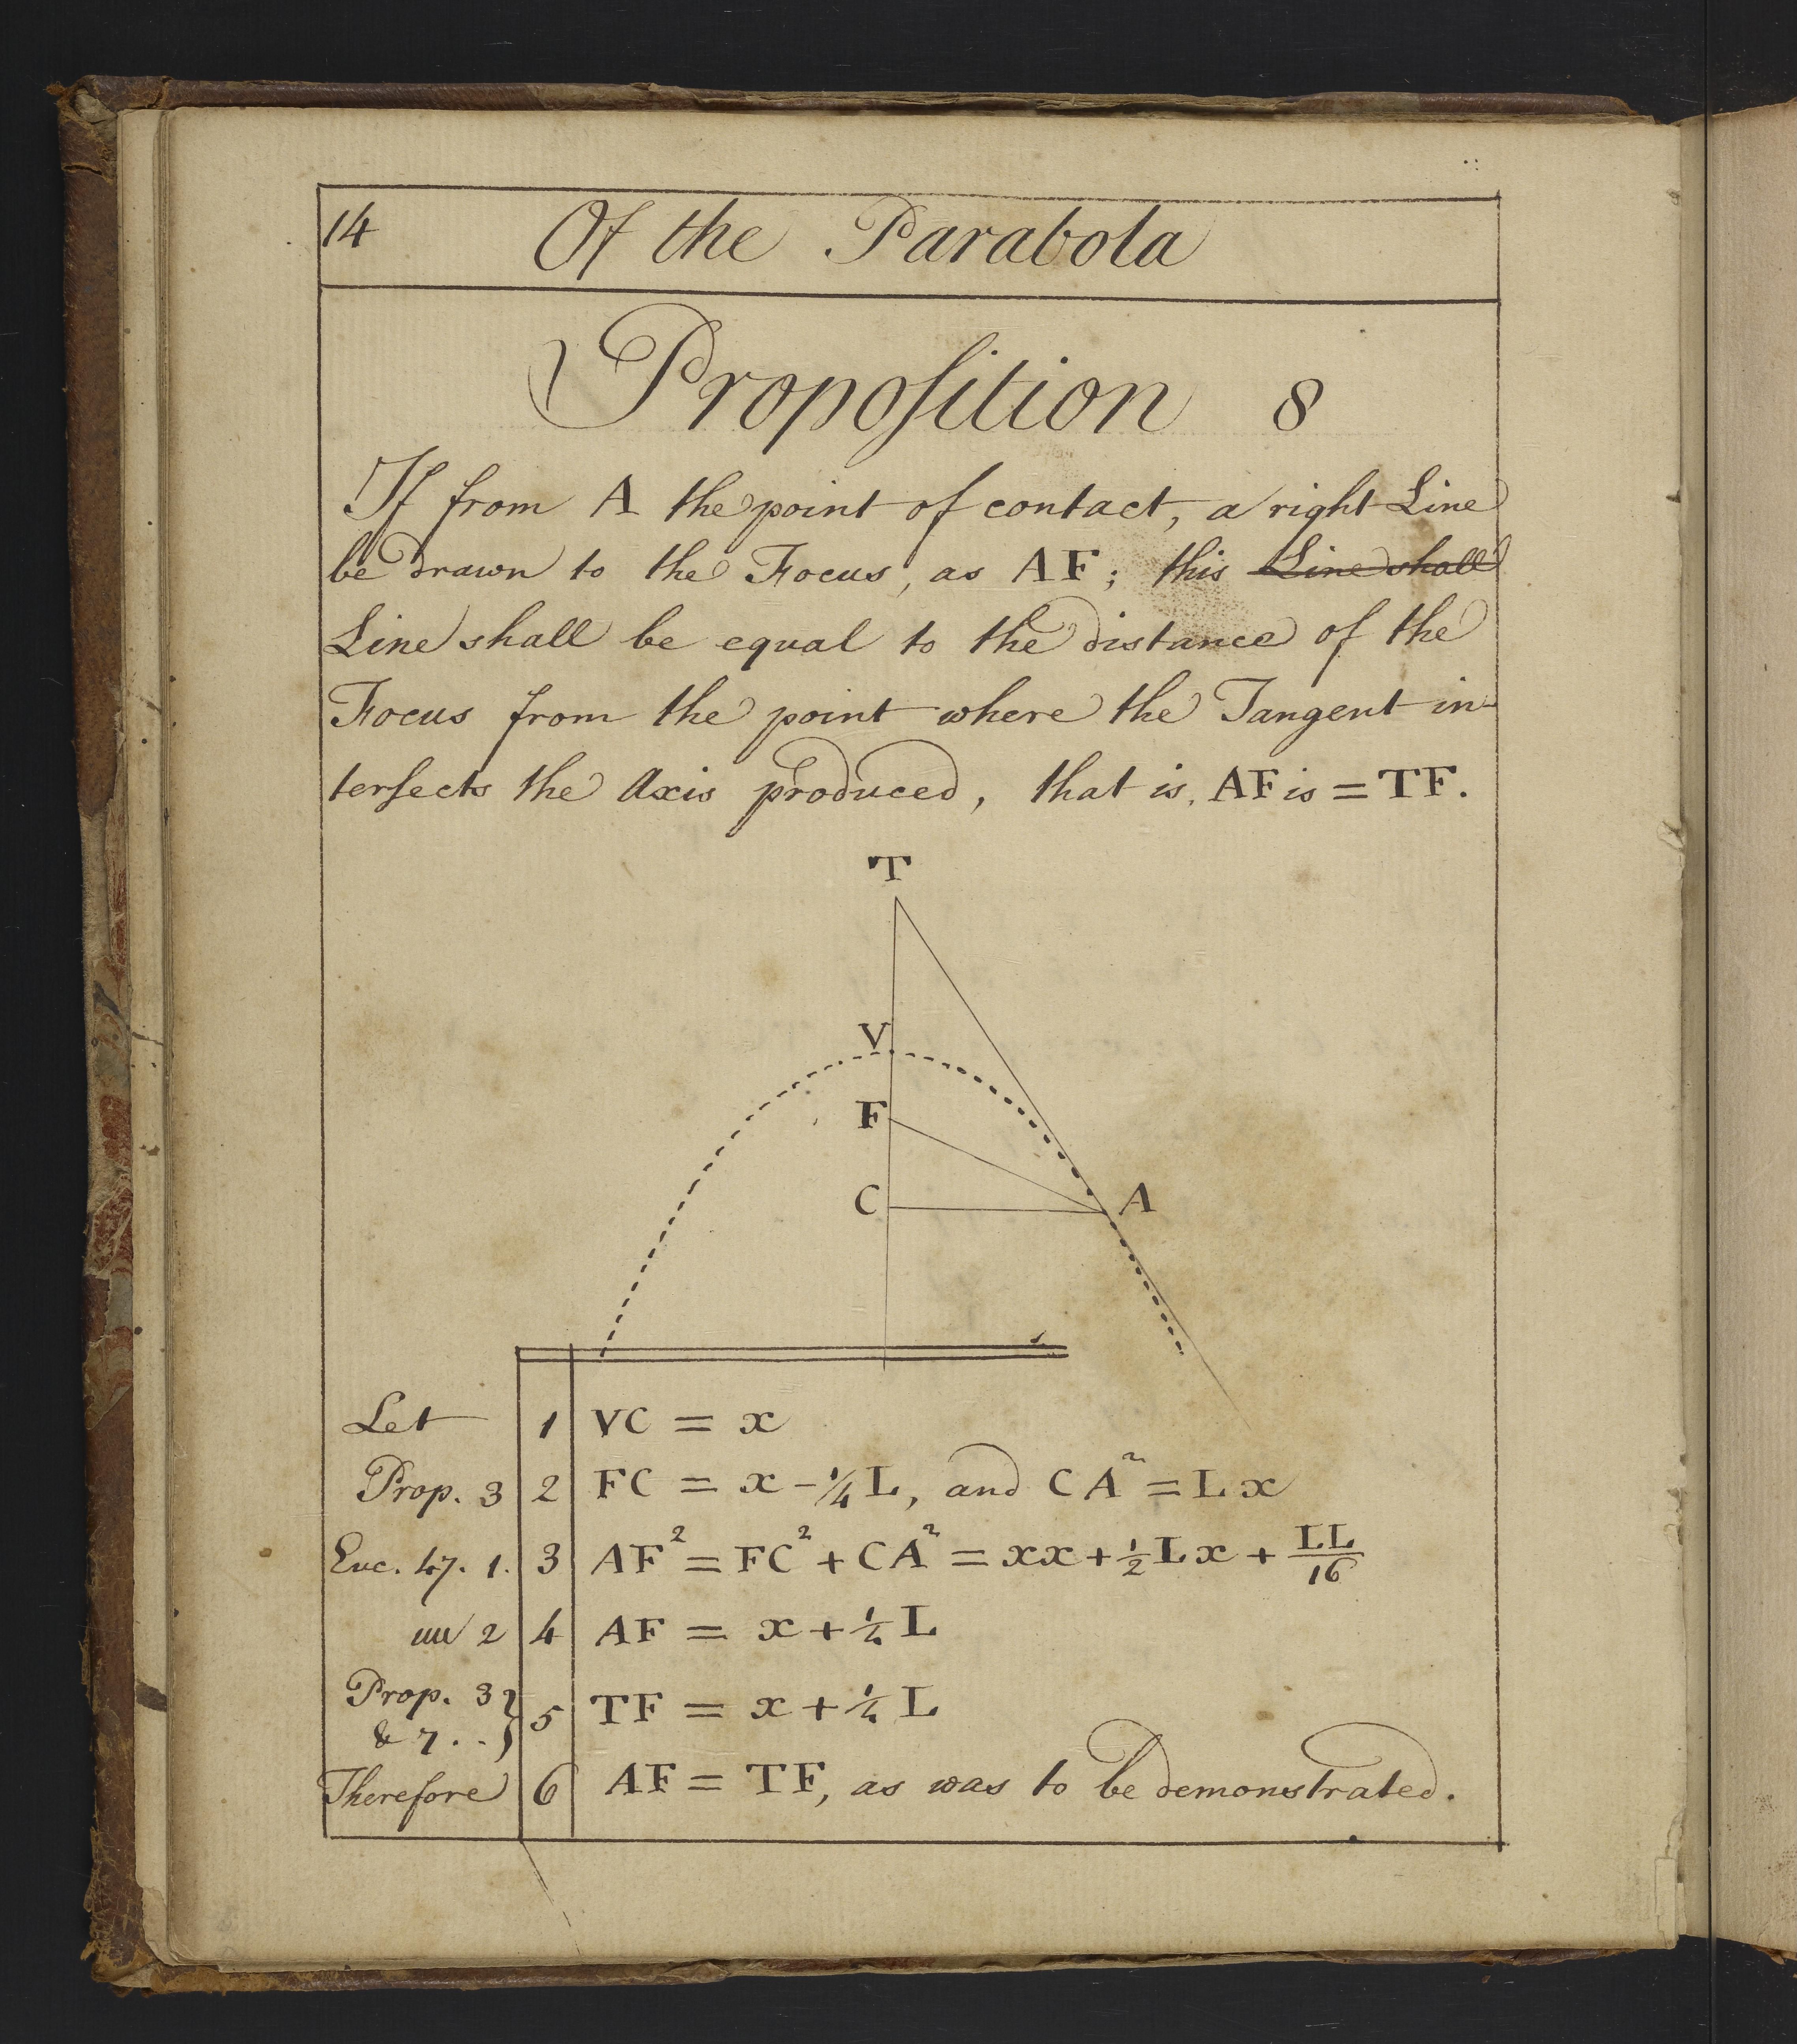 14 Of the Parabola
Propoſition 8
If from A the point of contact, a right Line
be drawn to the Focus, as AF; this ~~Line shall~~
Line shall be equal to the distance of the
Focus from the point where the Tangent in-
terſects the Axis produced, that is, AF is = TF.
T
V
F
C A
Let 1 VC = x
Prop. 3 2 FC = x - ¼L, and CA² = Lx
Euc. 47. 1. 3 AF² = FC² + CA² = xx + ½Lx + LL/16
uu 2 4 AF = x + ¼L
Prop. 3 } 5 TF = x + ¼L
& 7 . . }
Therefore 6 AF = TF, as was to be demonstrated.